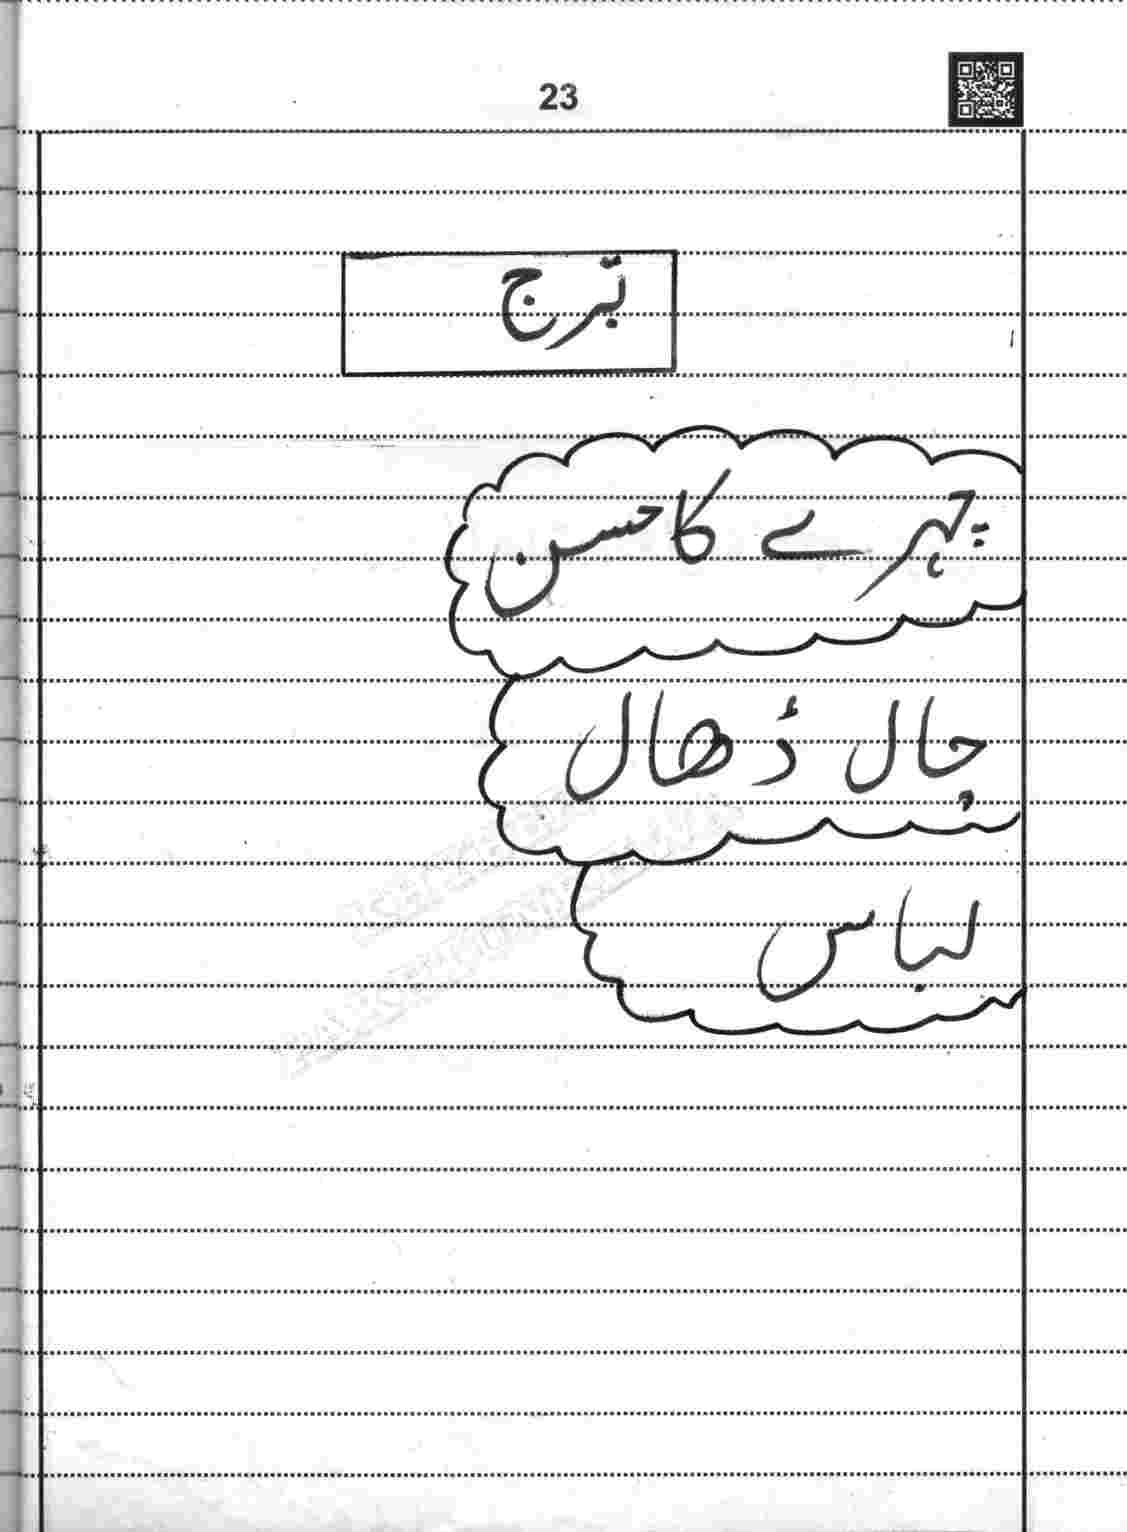 23
تبرج
چہرے کا حسن
چال ڈھال
لباس